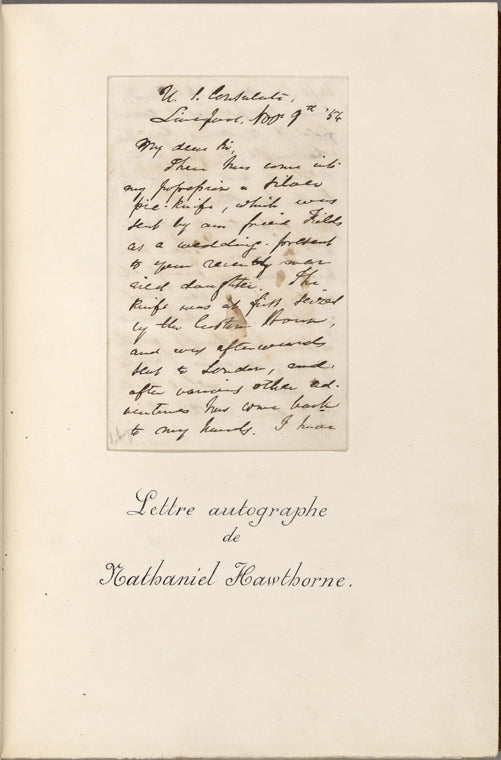 U. S. Consulate,
Liverpool, Nov 9th '54
My dear Sir,
There has come into
my possession a silver
pie-knife, which was
sent by our friend Fields
as a wedding-present
to your recently mar-
ried daughter. The
knife was at first seized
by the Custom House,
and was afterwards
sent to London, and
after various other ad-
ventures has come back
to my hands. I have
Lettre autographe
de
Nathaniel Hawthorne.